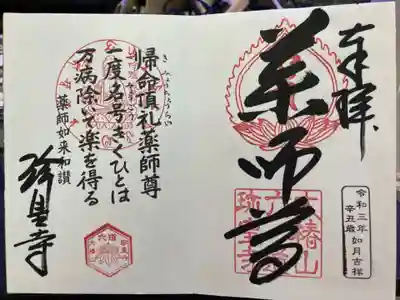 奉拝
薬師尊
令和三年如月吉祥
辛丑歳
帰命頂礼薬師尊
一度名号きくひとは
万病除いて楽を得る
薬師如来和讃
珍皇寺